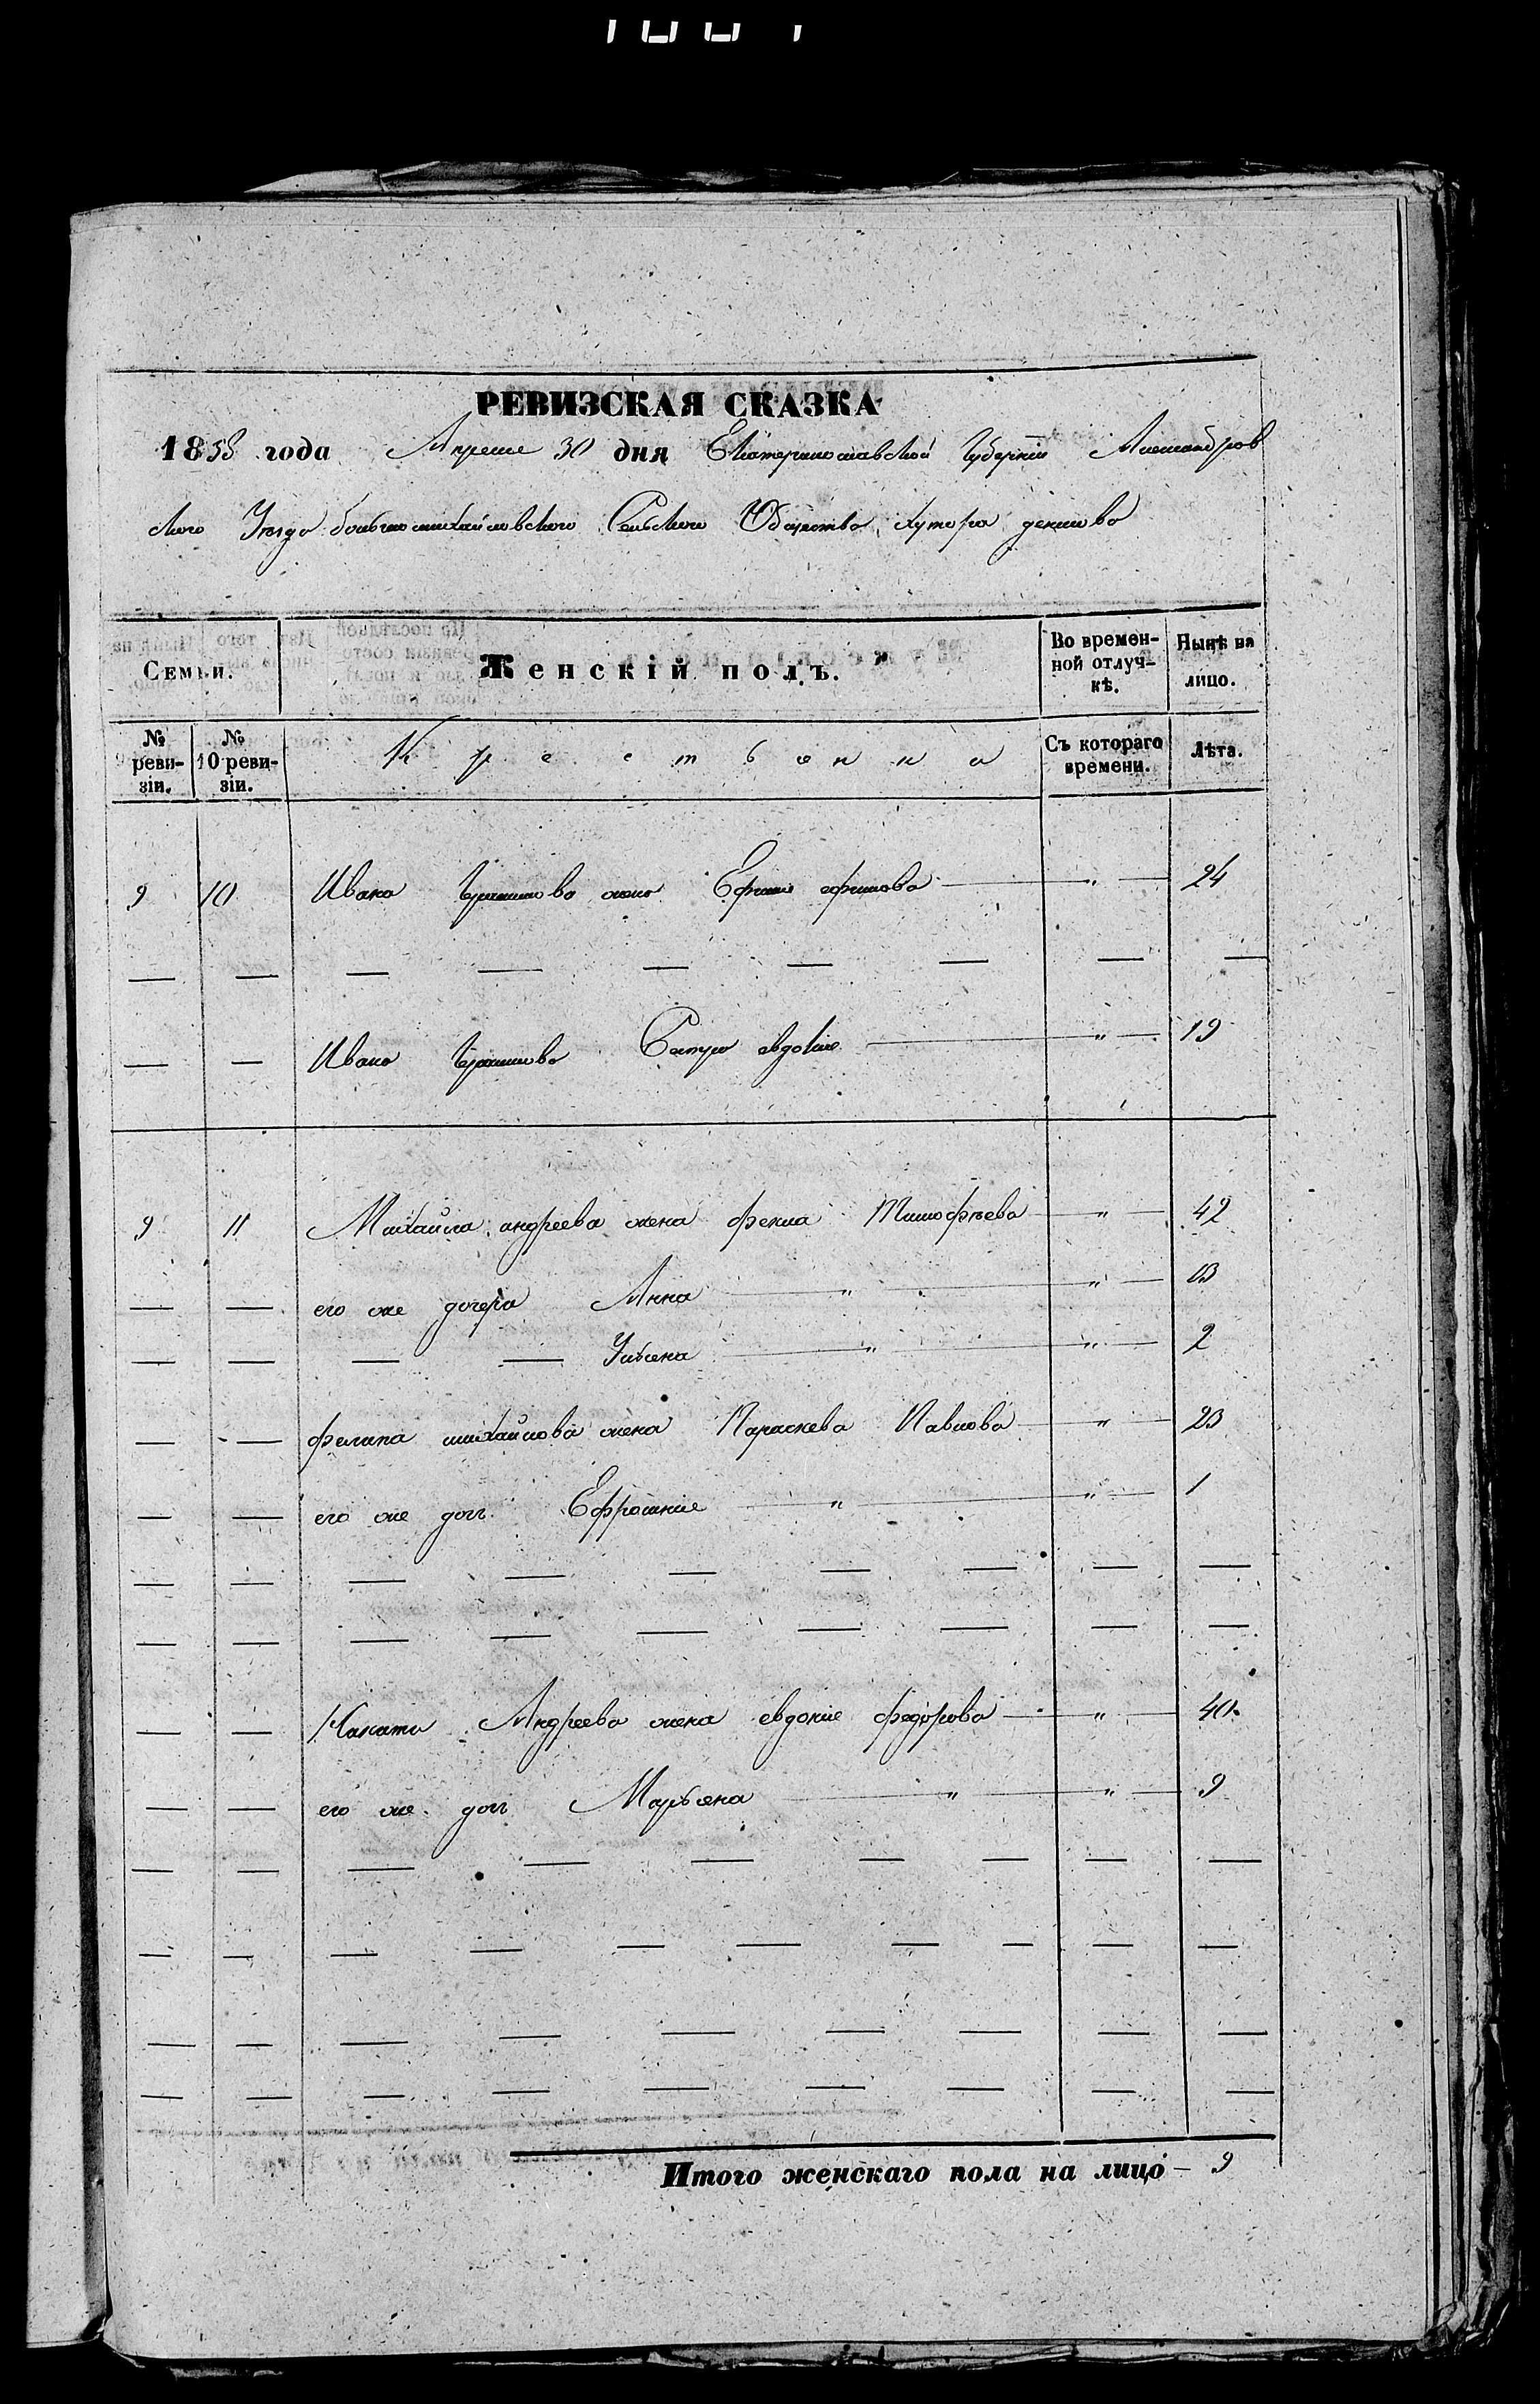 РЕВИЗСКАЯ СКАЗКА
1858 года Апреля 30 дня Екатеринославской Губернии Александров
ского Уезда большемихайловского Сельского Общества хутора
Семьи. Женскій полъ. Во времен-ной отлуч-кѣ. Нынѣ на лицо.
№ реви-зіи. № 10 реви-зіи. Крестьянка Съ котораго времени. Лѣта.
9 10 Ивана жена Ефимова — " — 24
— — — — — — — — —
— — Ивана Сестра евдокия — " — 19
9 11 Михайла андреева жена фекла Тимофѣева — " — 42
— — его же дочери Анна — " — " — 13
— — — — Ульяна — " — " — 2
— — филипа михайлова жена Параскева Павлова — " — 23
— — его же доч. Ефросиние — " — " — 1
— — — — — — — — —
— — — — — — — — —
— — Андреева жена евдокия федорова — " — 40
— — его же доч Марьяна — " — " — 9
— — — — — — — — —
— — — — — — — — — —
— — — — — — — — —
— — — — — — — — —
Итого женскаго пола на лицо — 9